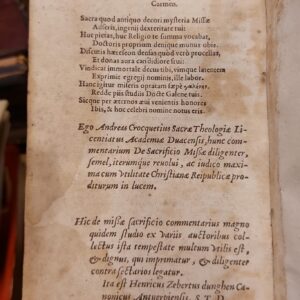 Carmen.
Sacra quod antiquo decori mysteria Missæ
Asseris, ingenii dexteritate tui:
Huc pietas, huc Religio te summa vocabat,
Doctoris proprium denique munus ibi.
Discutis hæreseon densas quod verò procellas,
Et donas aura candidiore frui:
Vindicat immortale decus tibi, vimque latentem
Exprimit egregij nominis, ille labor.
Hanc igitur miseris optatam
Redde piis studiis Docte Galene tuis.
Sicque per æternos æui venientis honores
Ibis, & hoc celebri nomine notus eris.
Ego Andreas Crocquerius Sacræ Theologiæ Li-
centiatus Academiæ Duacensis, hunc com-
mentarium De Sacrificio Missæ diligenter,
semel, iterumque reuolui, ac iudico maxi-
ma cum Vtilitate Christianæ Reipublicæ pro-
diturum in lucem.
Hic de missæ sacrificio commentarius magno
quidem studio ex variis auctoribus col-
lectus ista tempestate multum vtilis est,
& dignus, qui imprimatur, & diligenter
contra sectarios legatur.
Ita est Henricus Zebertus dunghen Ca-
nonicus Antuerpiensis, S. T. D.